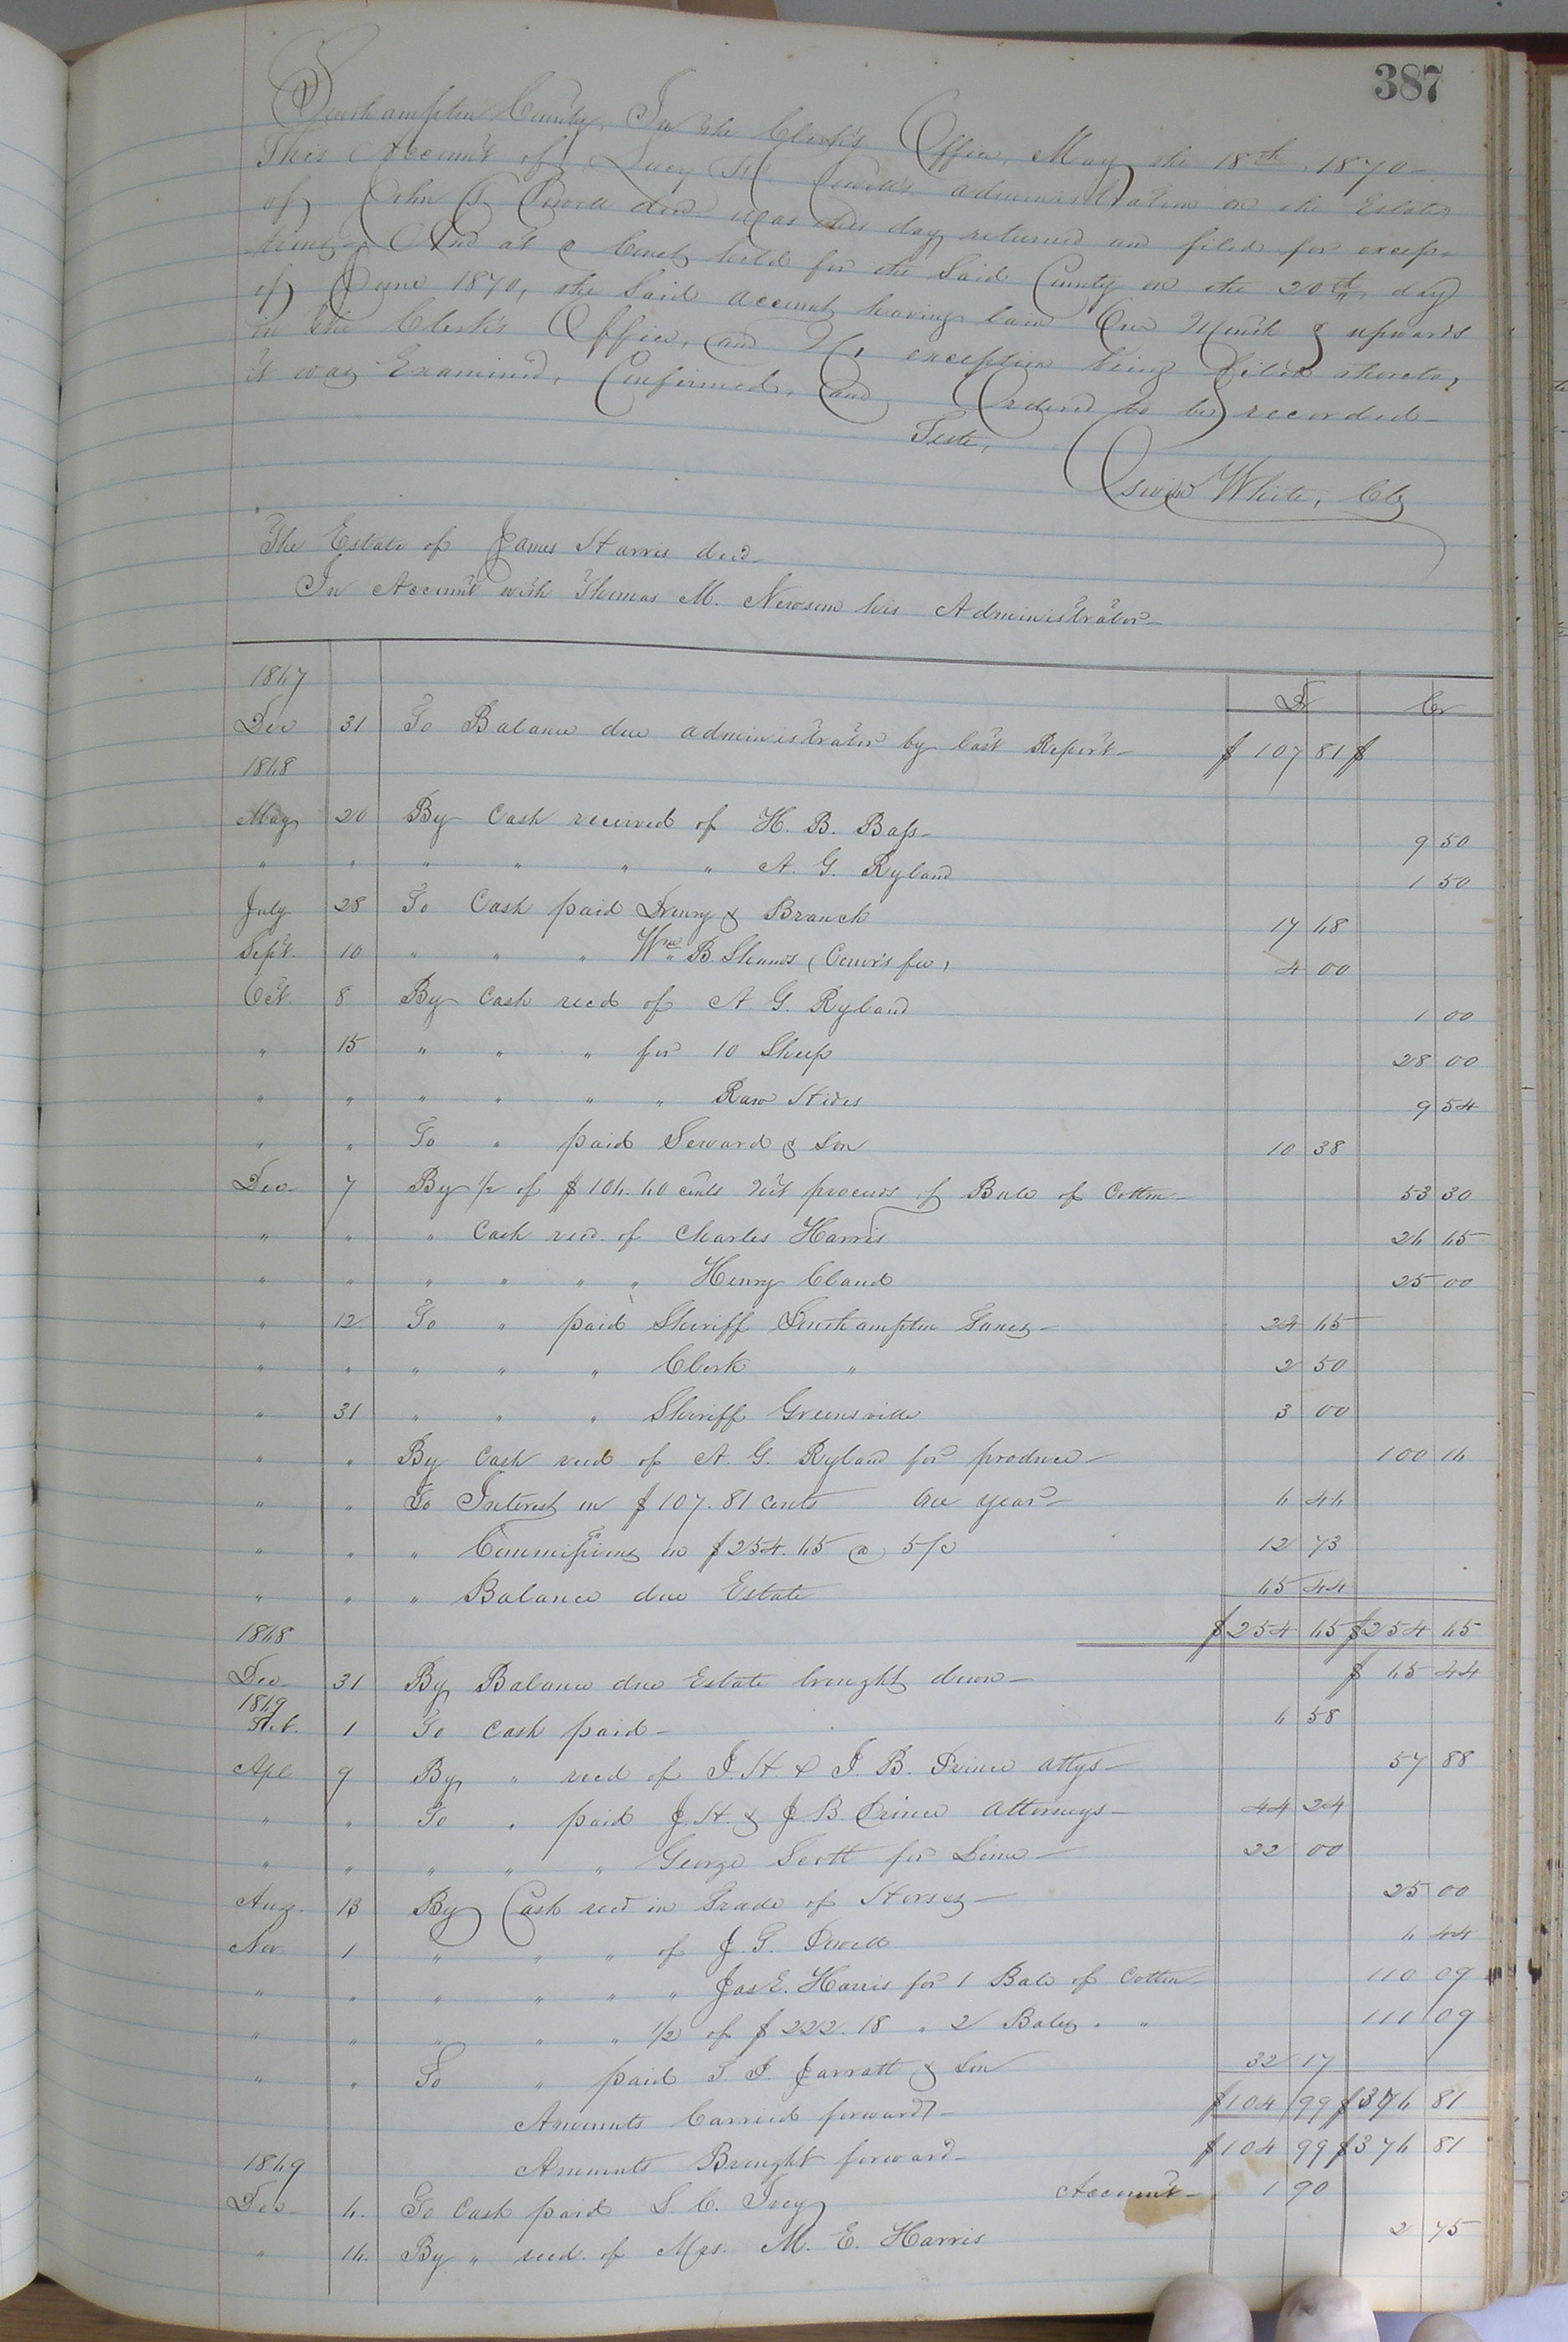 387
Southampton County, In the Clerk's Office, May the 18th, 1870
This Account of Lucy W. Powell's administration on the Estate
of John T. Powell decd was this day returned and filed for excep-
tions, And at a Court held for the Said County on the 20th, day
of June 1870, the Said account having lain One Month & upwards
in the Clerk's Office, and No exception being filed thereto,
it was Examined, Confirmed, and Ordered to be recorded
Teste,
White, Clk
The Estate of James Harris decd
In Account with Thomas M. Newsom his Administrator
1867 Dr Cr
Dec 31 To Balance due administrator by last Report $ 107 81 $
1868
May 20 By Cash received of H. B. Bass 9 50
" " " " " " A. G. Ryland 1 50
July 28 To Cash paid Drewry & Branch 17 68
Sept. 10 " " " Wm B. Shands (Comr's fee) 4 00
Oct 8 By Cash recd of A. G. Ryland 1 00
" 15 " " " for 10 Sheep 28 00
" " " " " " Raw Hides 9 54
" " To " paid Seward & Son 10 38
Dec 7 By 1/2 of $106.60 cents Net proceeds of Bale of Cotton 53 30
" " " Cash recd. of Charles Harris 26 65
" " " " " " Henry Claud 25 00
" 12 To " paid Sheriff Southampton Taxes 24 65
" " " " " Clerk " 2 50
" 31 " " " Sheriff Greensville 3 00
" " By Cash recd of A. G. Ryland for produce 100 16
" " To Interest on $107.81 cents One year 6 46
" " " Commissions on $254.65 @ 5/c 12 73
" " " Balance due Estate 65 44
1868 $254 65 $254 65
Dec 31 By Balance due Estate brought down $ 65 44
1869
Feb. 1 To Cash paid 6 58
Apl 9 By " recd of J. H. & J. B. Prince attys 57 88
" " To " paid J. H. & J. B. Prince Attorneys 44 24
" " " " " George Scott for Lime 22 00
Aug. 13 By Cash recd in Trade of Horses 25 00
Nov 1 " " " of J. G. Powell 6 44
" " " " " " Jas E. Harris for 1 Bale of Cotton 110 09
" " " " " 1/2 of $222.18 " 2 Bales " " 111 09
" " To " paid T. J. Jarratt & Son 32 17
Amounts Carried forward $104 99 $376 81
1869 Amounts Brought forward $104 99 $376 81
Dec 6. To Cash paid S. C. Account 1 90
" 16. By " recd. of Mrs. M. E. Harris 2 75